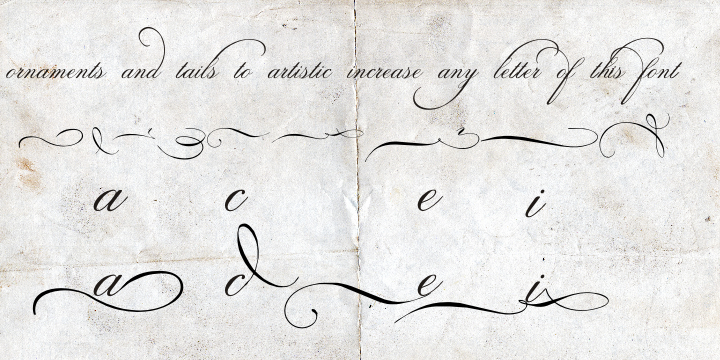 ornaments and tails to artistic increase any letter of this font
a c e i
a c e i